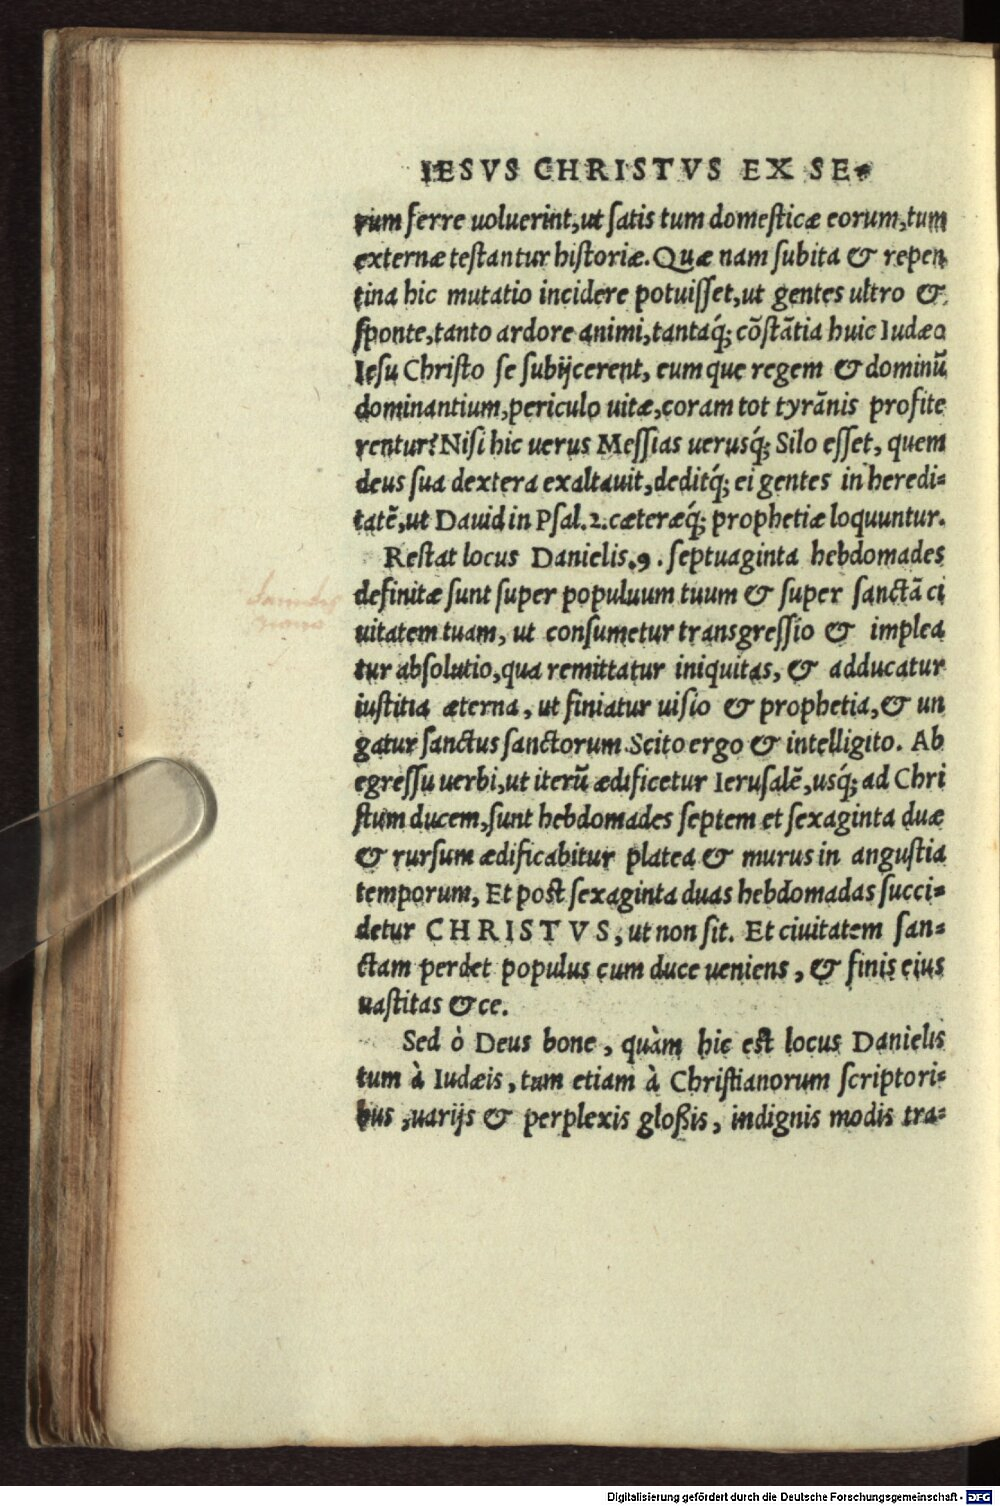 IESVS CHRISTVS EX SE-
rum ferre uoluerint, ut ſatis tum domeſticæ eorum, tum
externæ teſtantur hiſtoriæ. Quæ nam ſubita & repen
tina hic mutatio incidere potuiſſet, ut gentes ultro &
ſponte, tanto ardore animi, tantaq́; cōſtātia huic Iudæo
Ieſu Chriſto ſe ſubijcerent, eum que regem & dominū
dominantium, periculo uitæ, coram tot tyrānis profite
rentur? Niſi hic uerus Meſſias uerusq́; Silo eſſet, quem
deus ſua dextera exaltauit, deditq́; ei gentes in heredi-
tatē, ut Dauid in Pſal. 2. cæteræq́; prophetiæ loquuntur.
Reſtat locus Danielis. 9. ſeptuaginta hebdomades
definitæ ſunt ſuper populuum tuum & ſuper ſanctā ci
uitatem tuam, ut conſumetur transgreſſio & implea
tur abſolutio, qua remittatur iniquitas, & adducatur
iuſtitia æterna, ut finiatur uiſio & prophetia, & un
gatur ſanctus ſanctorum. Scito ergo & intelligito. Ab
egreſſu uerbi, ut iterū ædificetur Ieruſalē, usq́; ad Chri
ſtum ducem, ſunt hebdomades ſeptem et ſexaginta duæ
& rurſum ædificabitur platea & murus in anguſtia
temporum, Et poſt ſexaginta duas hebdomadas ſucci-
detur CHRISTVS, ut non ſit. Et ciuitatem ſan-
ctam perdet populus cum duce ueniens, & finis eius
uaſtitas & ce.
Sed ò Deus bone, quàm hic eſt locus Danielis
tum à Iudæis, tum etiam à Chriſtianorum ſcriptori-
bus, uarijs & perplexis gloßis, indignis modis tra-
Digitalisierung gefördert durch die Deutsche Forschungsgemeinschaft - DFG